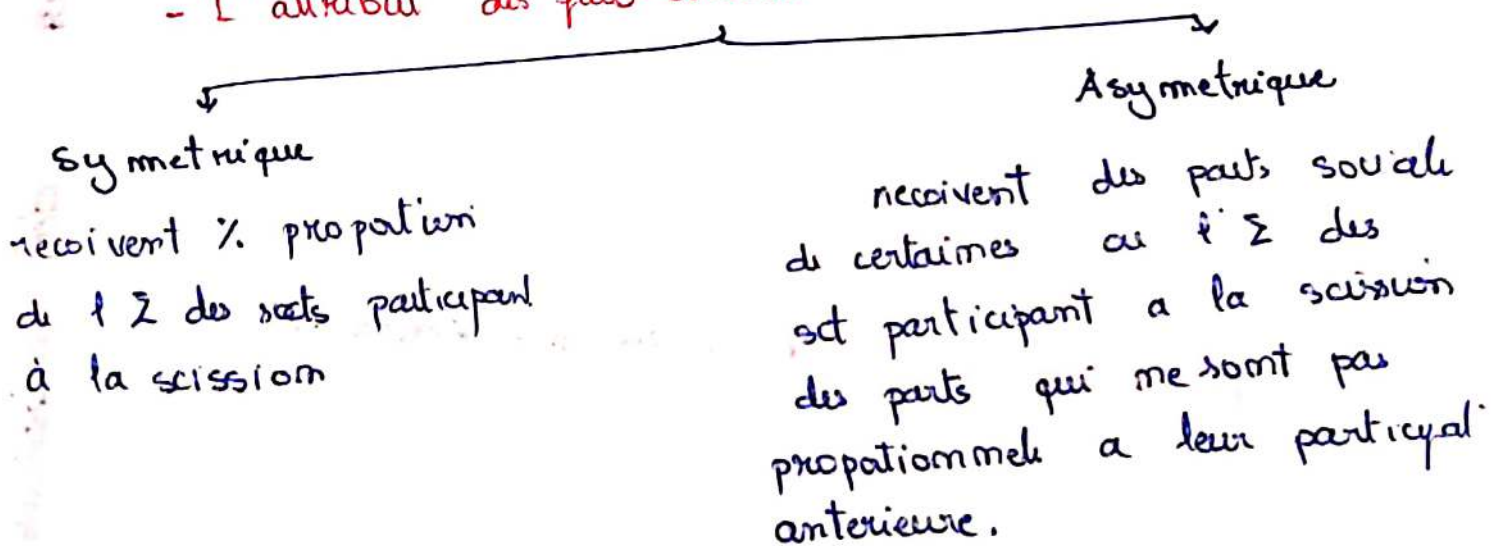 - L' attribut° des parts
Symetrique
recoivent % propotion
de l'Σ des sects participant
à la scission
Asymetrique
recoivent des parts sociale
de certaines ou l'Σ des
sct participant a la scission
des parts qui ne sont pas
propationnele a leur participat°
anterieure.